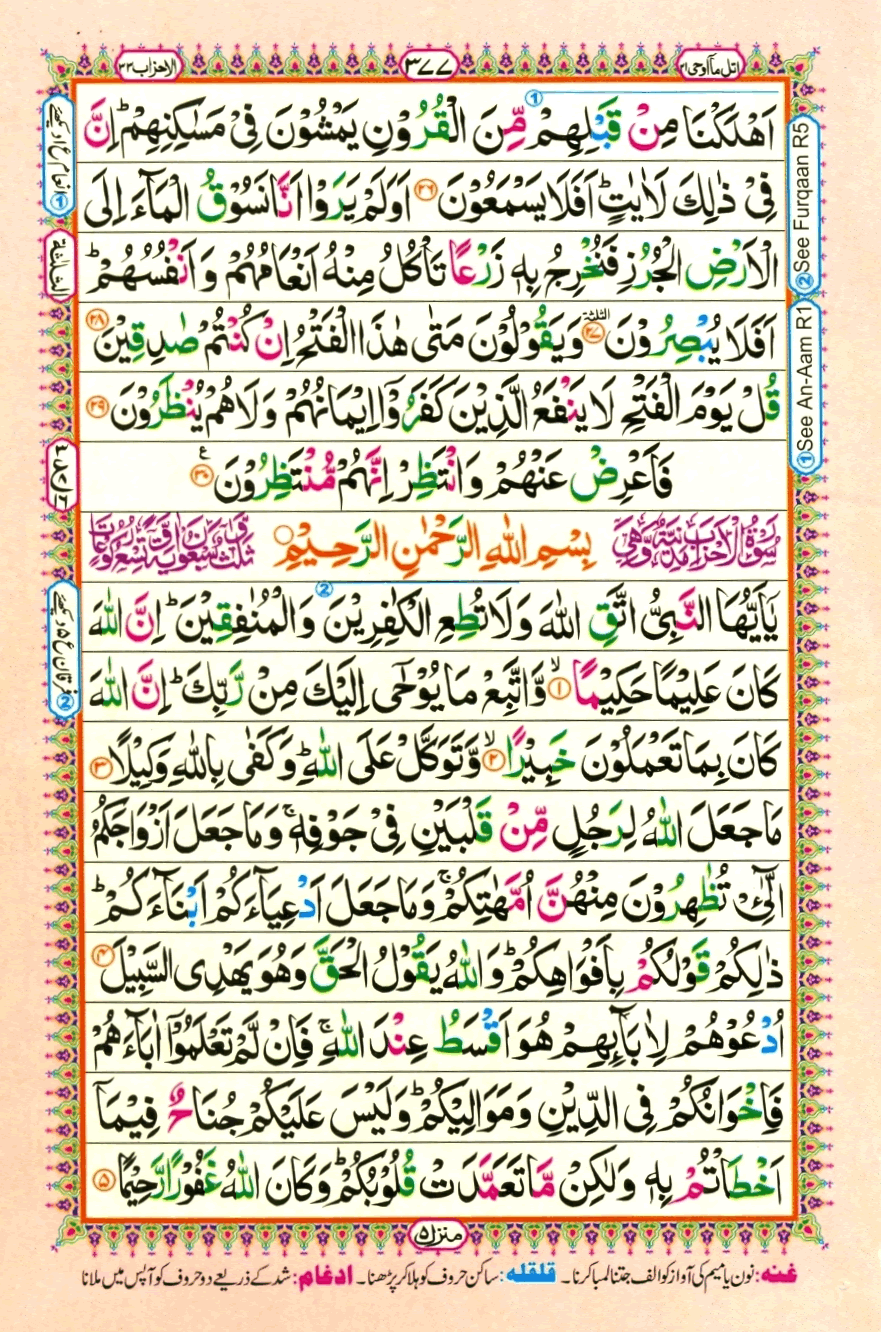 اتل ماۤ اوحی ٢١
٣٧٧
الاحزاب ٣٣
اَهْلَكْنَا مِنْ قَبْلِهِمْ مِّنَ الْقُرُوْنِ يَمْشُوْنَ فِيْ مَسٰكِنِهِمْ ؕ اِنَّ
فِيْ ذٰلِكَ لَاٰيٰتٍ ؕ اَفَلَا يَسْمَعُوْنَ ٢٦ اَوَلَمْ يَرَوْا اَنَّا نَسُوْقُ الْمَآءَ اِلَى
الْاَرْضِ الْجُرُزِ فَنُخْرِجُ بِهٖ زَرْعًا تَاْكُلُ مِنْهُ اَنْعَامُهُمْ وَاَنْفُسُهُمْ ؕ
اَفَلَا يُبْصِرُوْنَ ٢٧ وَيَقُوْلُوْنَ مَتٰى هٰذَا الْفَتْحُ اِنْ كُنْتُمْ صٰدِقِيْنَ ٢٨
قُلْ يَوْمَ الْفَتْحِ لَا يَنْفَعُ الَّذِيْنَ كَفَرُوْۤا اِيْمَانُهُمْ وَلَا هُمْ يُنْظَرُوْنَ ٢٩
فَاَعْرِضْ عَنْهُمْ وَانْتَظِرْ اِنَّهُمْ مُّنْتَظِرُوْنَ ٣٠
سُوْرَةُ الْاَحْزَابِ مَدَنِيَّةٌ وَّهِيَ
بِسْمِ اللّٰهِ الرَّحْمٰنِ الرَّحِيْمِ
ثَلٰثٌ وَّسَبْعُوْنَ اٰيَةً وَّتِسْعُ رُكُوْعَاتٍ
يٰۤاَيُّهَا النَّبِيُّ اتَّقِ اللّٰهَ وَلَا تُطِعِ الْكٰفِرِيْنَ وَالْمُنٰفِقِيْنَ ؕ اِنَّ اللّٰهَ
كَانَ عَلِيْمًا حَكِيْمًا ۙ ١ وَّاتَّبِعْ مَا يُوْحٰۤى اِلَيْكَ مِنْ رَّبِّكَ ؕ اِنَّ اللّٰهَ
كَانَ بِمَا تَعْمَلُوْنَ خَبِيْرًا ۙ ٢ وَّتَوَكَّلْ عَلَى اللّٰهِ ؕ وَكَفٰى بِاللّٰهِ وَكِيْلًا ٣
مَا جَعَلَ اللّٰهُ لِرَجُلٍ مِّنْ قَلْبَيْنِ فِيْ جَوْفِهٖ ۚ وَمَا جَعَلَ اَزْوَاجَكُمُ
الّٰٓـِٔيْ تُظٰهِرُوْنَ مِنْهُنَّ اُمَّهٰتِكُمْ ۚ وَمَا جَعَلَ اَدْعِيَآءَكُمْ اَبْنَآءَكُمْ ؕ
ذٰلِكُمْ قَوْلُكُمْ بِاَفْوَاهِكُمْ ؕ وَاللّٰهُ يَقُوْلُ الْحَقَّ وَهُوَ يَهْدِى السَّبِيْلَ ٤
اُدْعُوْهُمْ لِاٰبَآئِهِمْ هُوَ اَقْسَطُ عِنْدَ اللّٰهِ ۚ فَاِنْ لَّمْ تَعْلَمُوْۤا اٰبَآءَهُمْ
فَاِخْوَانُكُمْ فِى الدِّيْنِ وَمَوَالِيْكُمْ ؕ وَلَيْسَ عَلَيْكُمْ جُنَاحٌ فِيْمَاۤ
اَخْطَاْتُمْ بِهٖ وَلٰكِنْ مَّا تَعَمَّدَتْ قُلُوْبُكُمْ ؕ وَكَانَ اللّٰهُ غَفُوْرًا رَّحِيْمًا ٥
② See Furqaan R5
① See An-Aam R1
① انعام ع ١ دیکھیے
الثلثة
② فرقان ع ٥ دیکھیے
منزل ٥
غنہ: نون یا میم کی آواز کو الف جتنا لمبا کرنا۔ قلقلہ: ساکن حروف کو ہلا کر پڑھنا۔ ادغام: شد کے ذریعے دو حروف کو آپس میں ملانا